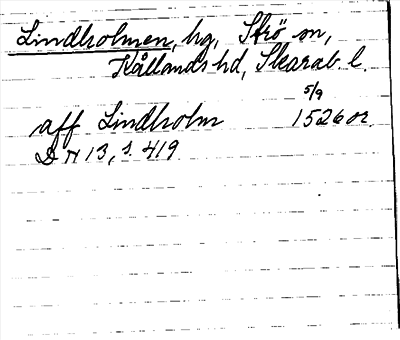 Lindholmen, hg, Strö sn,
Kållands hd, Skarab. l.
5/9
aff Lindholm 1526 or.
DN 13, s. 419